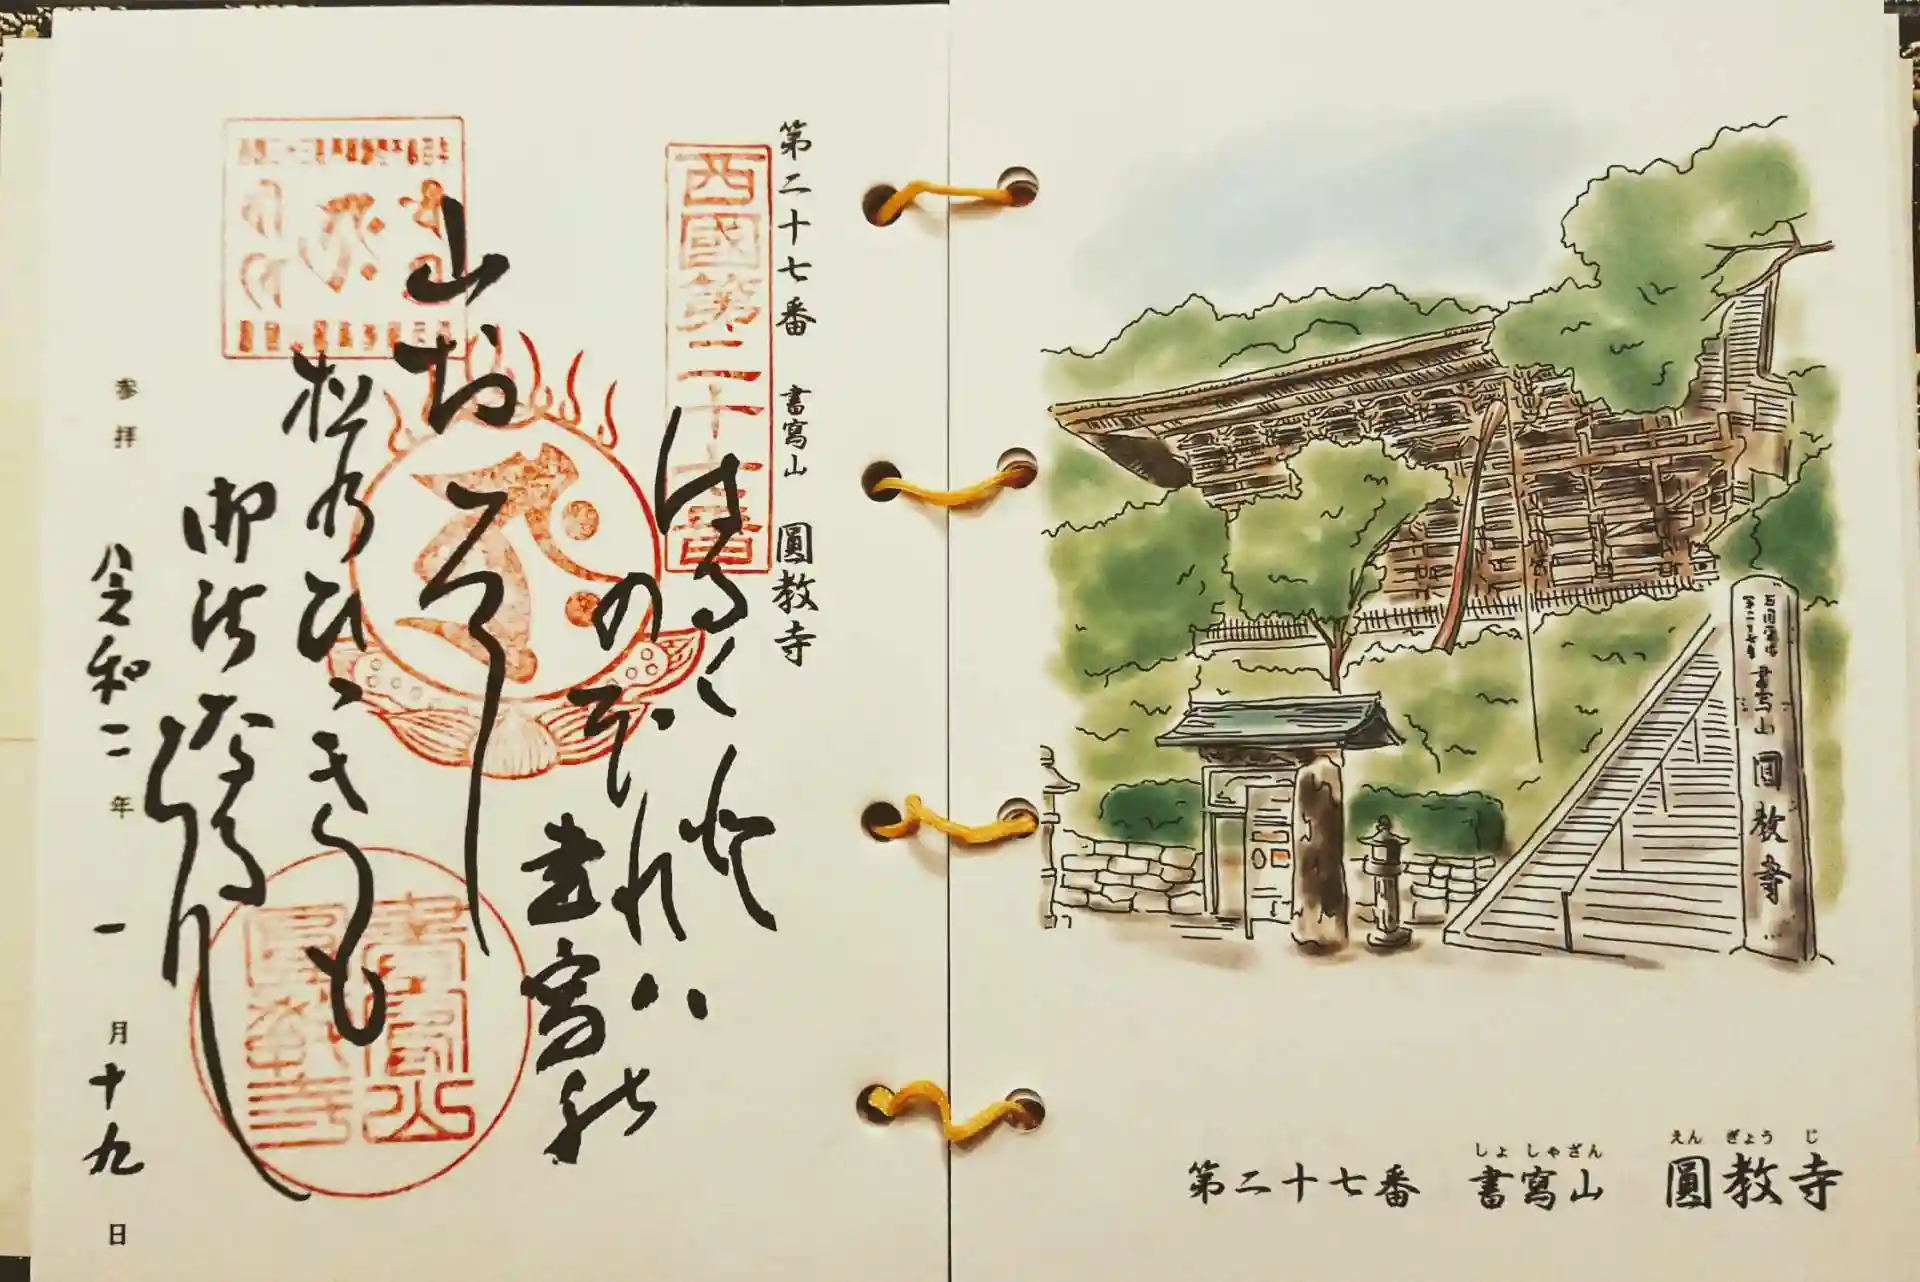 第二十七番 書寫山 圓教寺
西國第二十七番
はる〱登
のぼれハ
書寫能
山おろし
松乃ひゝきも
御法奈るらん
書寫山
圓教寺
参拝 令和二年 一月十九日
書寫山 圓教寺
しょしゃざん えんぎょうじ
第二十七番 書寫山 圓教寺